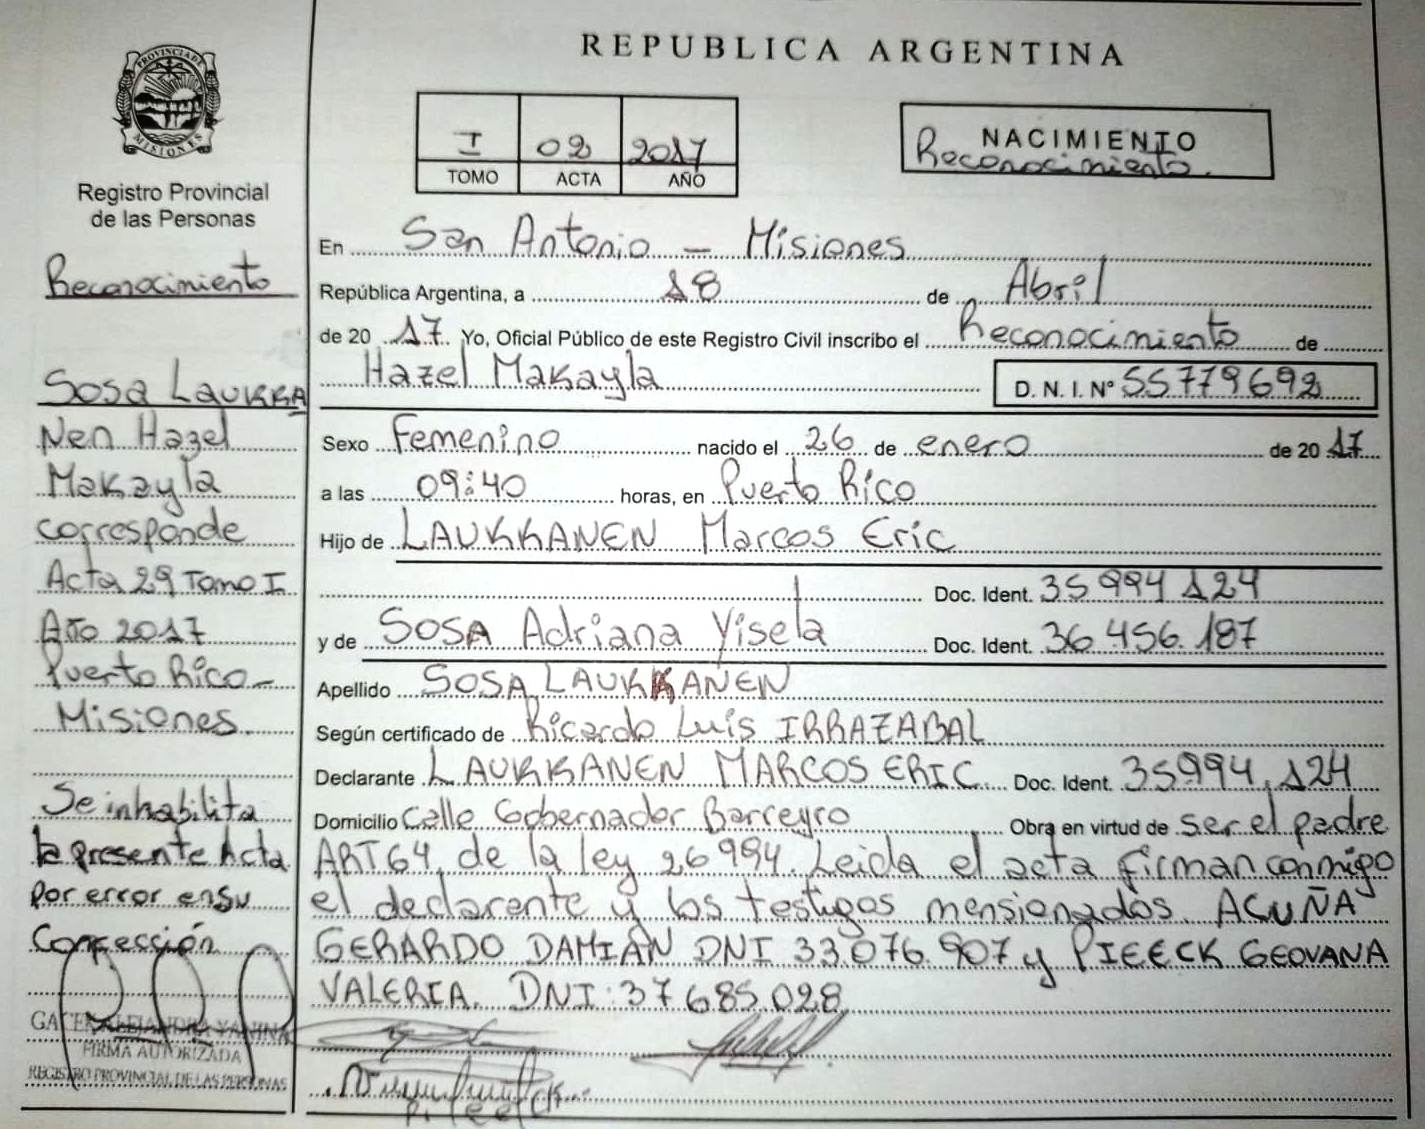 REPUBLICA ARGENTINA
PROVINCIA DE MISIONES
Registro Provincial
de las Personas
I 02 2017
TOMO ACTA AÑO
NACIMIENTO
Reconocimiento.
Reconocimiento
Sosa LAUKKA
Nen Hazel
Makayla
corresponde
Acta 29 Tomo I
Año 2017
Puerto Rico -
Misiones.
Se inhabilita
la presente Acta
por error en su
Confección
GACEK ALEJANDRA YANINA
FIRMA AUTORIZADA
REGISTRO PROVINCIAL DE LAS PERSONAS
En San Antonio - Misiones
República Argentina, a 18 de Abril
de 2017. Yo, Oficial Público de este Registro Civil inscribo el Reconocimiento de
Hazel Makayla D. N. I. Nº 55779692
Sexo Femenino nacido el 26 de enero de 2017
a las 09:40 horas, en Puerto Rico
Hijo de LAUKKANEN Marcos Eric
Doc. Ident. 35 994 124
y de SOSA Adriana Yisela Doc. Ident. 36.456.187
Apellido SOSA LAUKKANEN
Según certificado de Ricardo Luis IRRAZABAL
Declarante LAUKKANEN MARCOS ERIC Doc. Ident. 35994.124
Domicilio Calle Gobernador Barreyro Obra en virtud de ser el padre
ART 64, de la ley 26994. Leida el acta firman conmigo
el declarente y los testigos mensionados. ACUÑA
GERARDO DAMIAN DNI 33.076.907 y PIEECK GEOVANA
VALERIA. DNI: 37 685.028